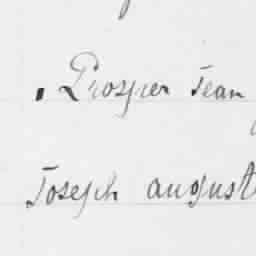 Prosper Jean
Joseph august